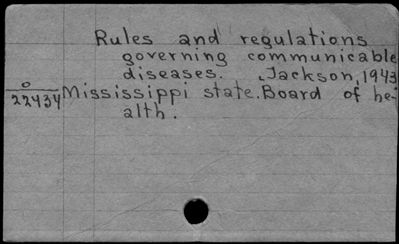 Rules and regulations
governing communicable
diseases. Jackson, 1943
o
22434 Mississippi state. Board of he-
alth.